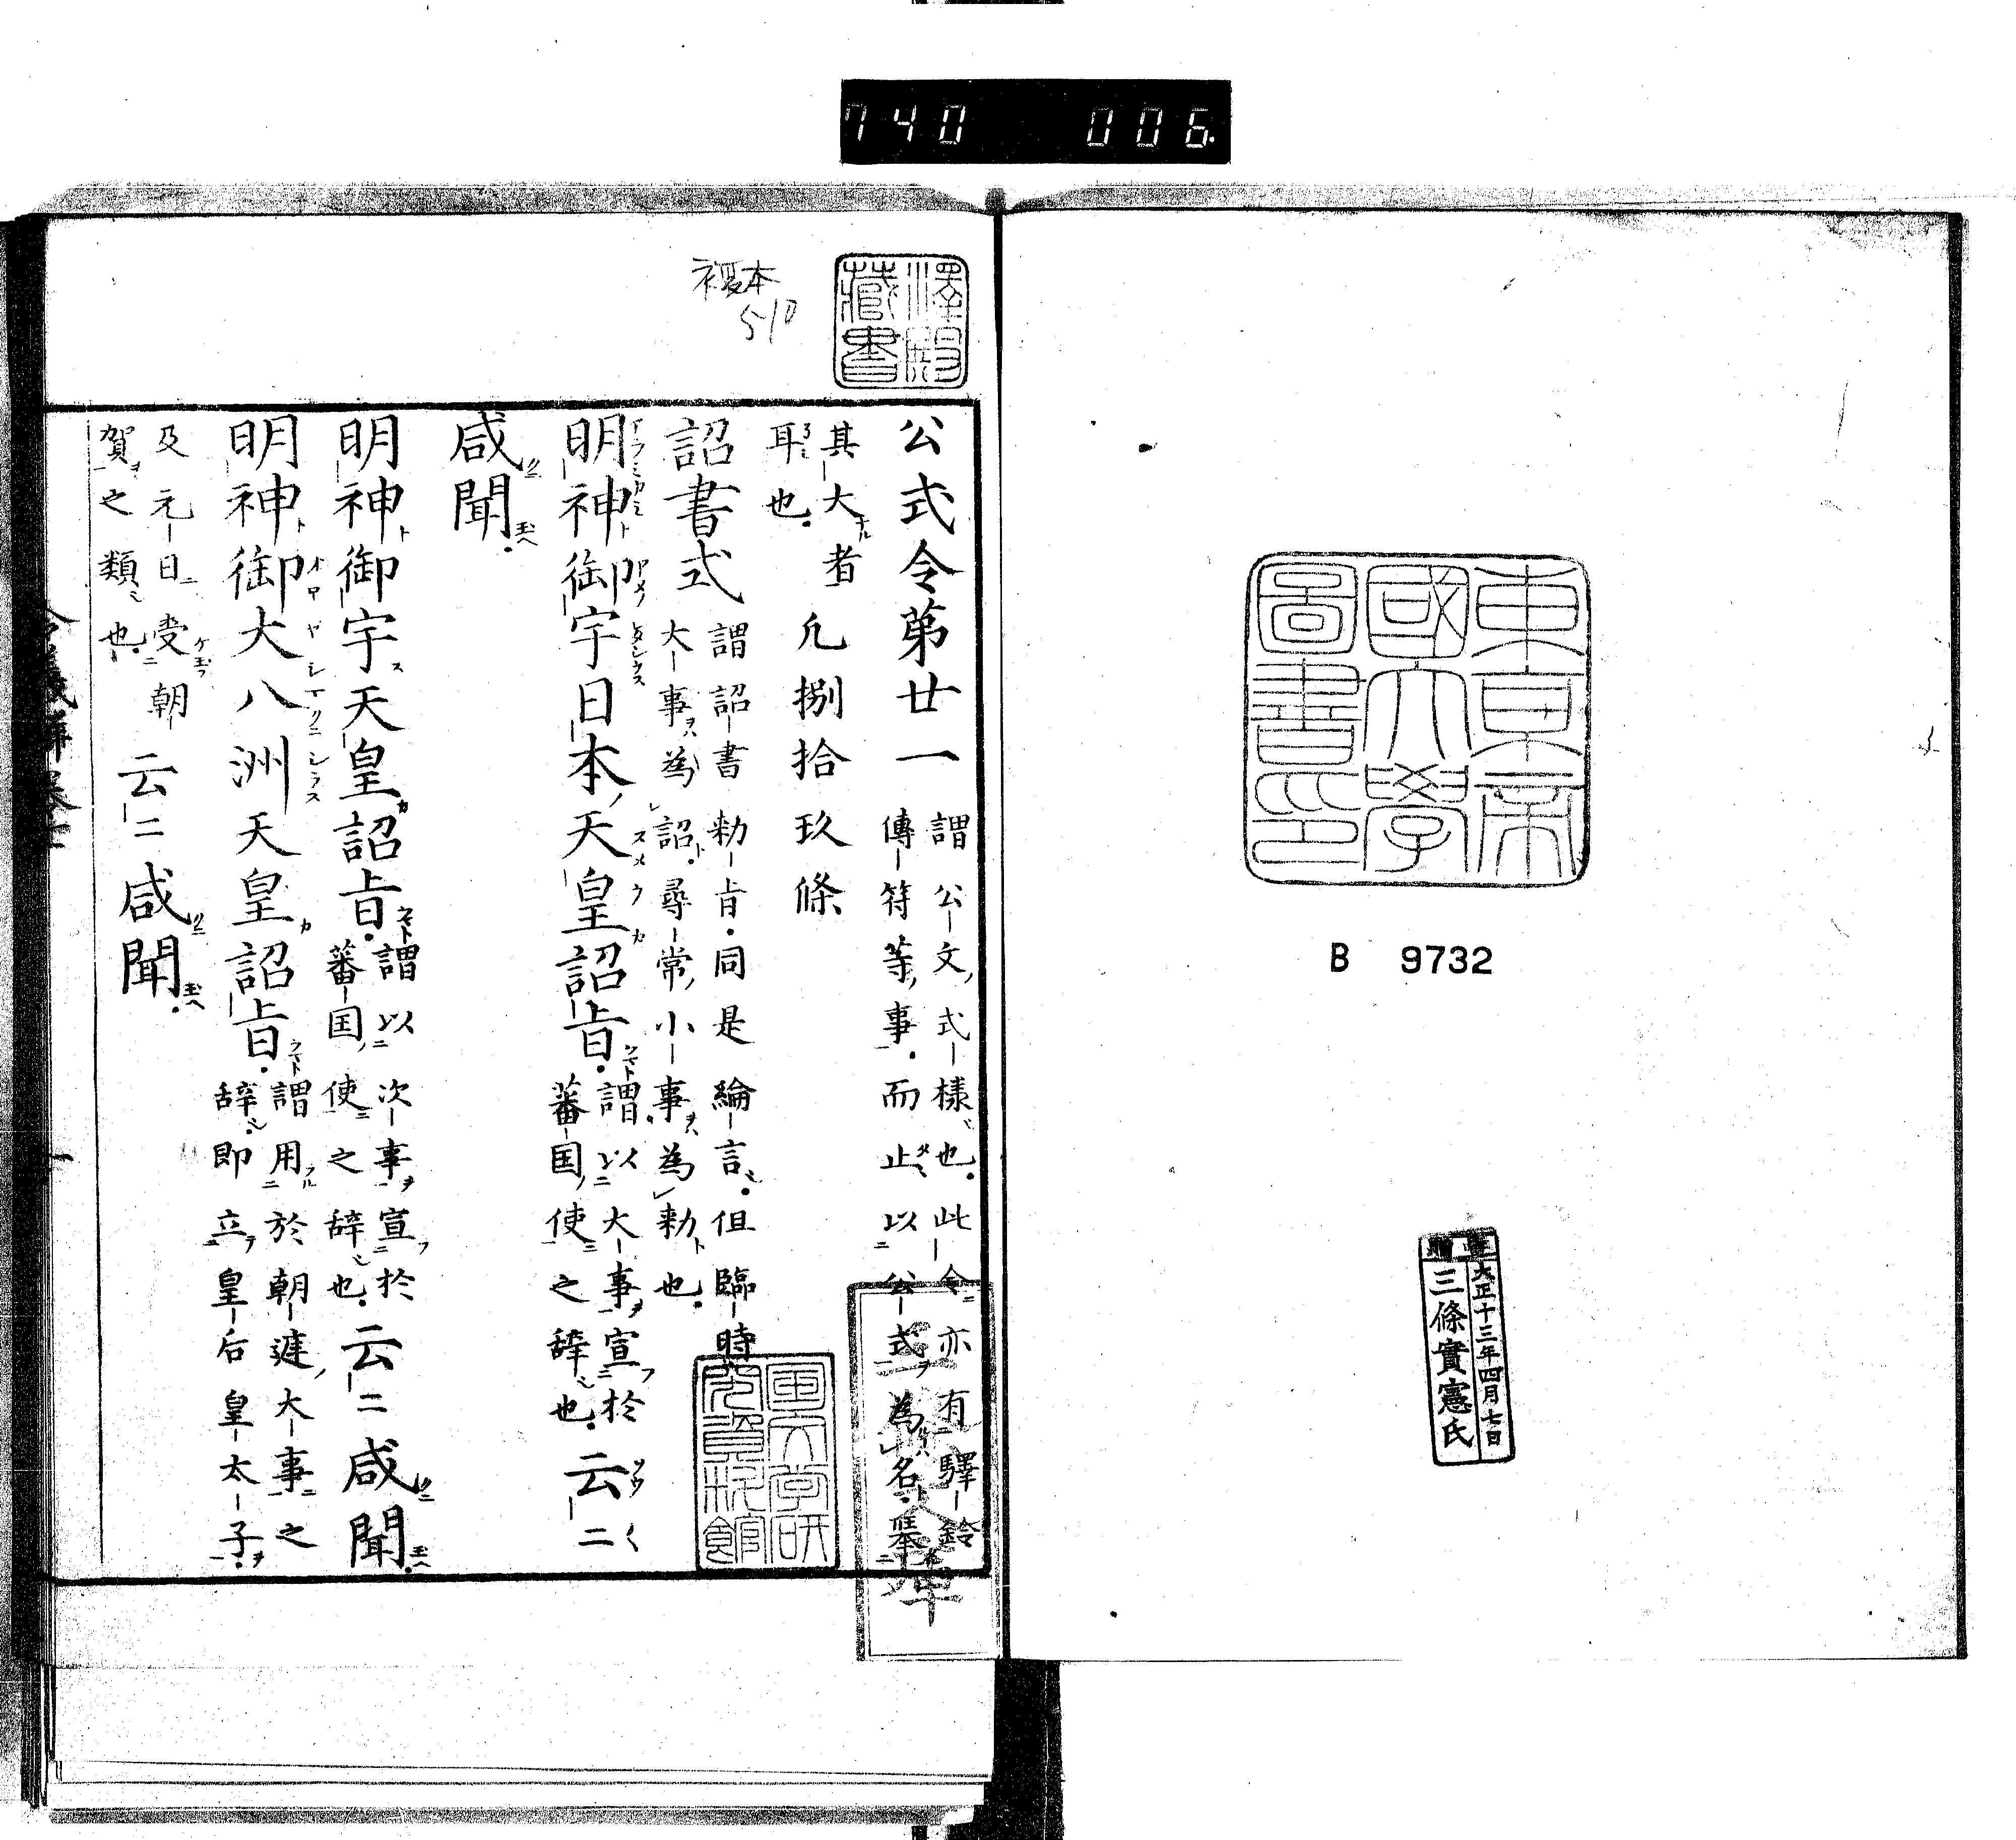 740 006
東京帝
國大學
圖書印
B 9732
寄贈
大正十三年四月七日
三條實憲氏
複本
510
藏書
公式令第廿一
謂公文式樣也此令亦有驛鈴
傳符等事而止以公式為名舉
其大者
耳也
凡捌拾玖條
詔書式
謂詔書勑旨同是綸言但臨時
大事為詔尋常小事為勑也
明神御宇日本天皇詔旨
謂以大事宣於
蕃国使之辞也
云二
咸聞
明神御宇天皇詔旨
謂以次事宣於
蕃国使之辞也
云二咸聞
明神御大八洲天皇詔旨
謂用於朝庭大事之
辞即立皇后皇太子
及元日受朝
賀之類也
云二咸聞
国文学研
究資料館